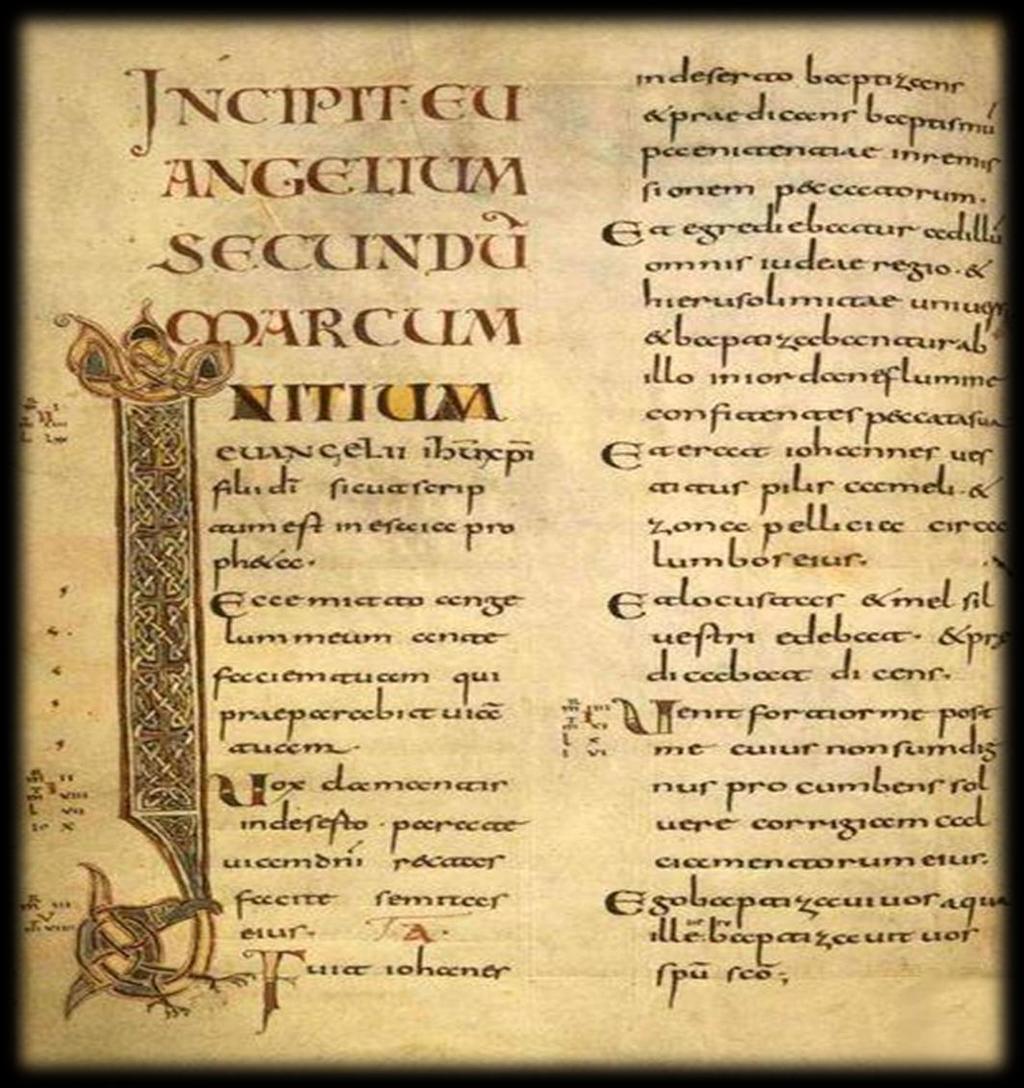 INCIPIT EU
ANGELIUM
SECUNDŪ
MARCUM
INITIUM
euangelii ih̄u xp̄i
filii dī sicut scrip
tum est in esaia pro
pheta.
Ecce mitto ange
lum meum ante
faciem tuam qui
praeparabit uiā
tuam.
Uox clamantis
in deserto parate
uiam dn̄i rectas
facite semitas
eius.
Fuit iohannes
in deserto baptizans
& praedicans baptismū
paenitentiae in remis
sionem peccatorum.
Et egrediebatur ad illū
omnis iudeae regio. &
hierusolimitae uniuer
& baptizabantur ab
illo in iordane flumine
confitentes peccata sua
Et erat iohannes ues
titus pilis cameli. &
zona pellicia circa
lumbos eius.
Et locustas & mel sil
uestri edebat. & pre
dicabat dicens.
Uenit fortior me post
me cuius non sum dig
nus procumbens sol
uere corrigiam cal
ciamentorum eius.
Ego baptizaui uos aqua
ille uero baptizauit uos
spū scō;